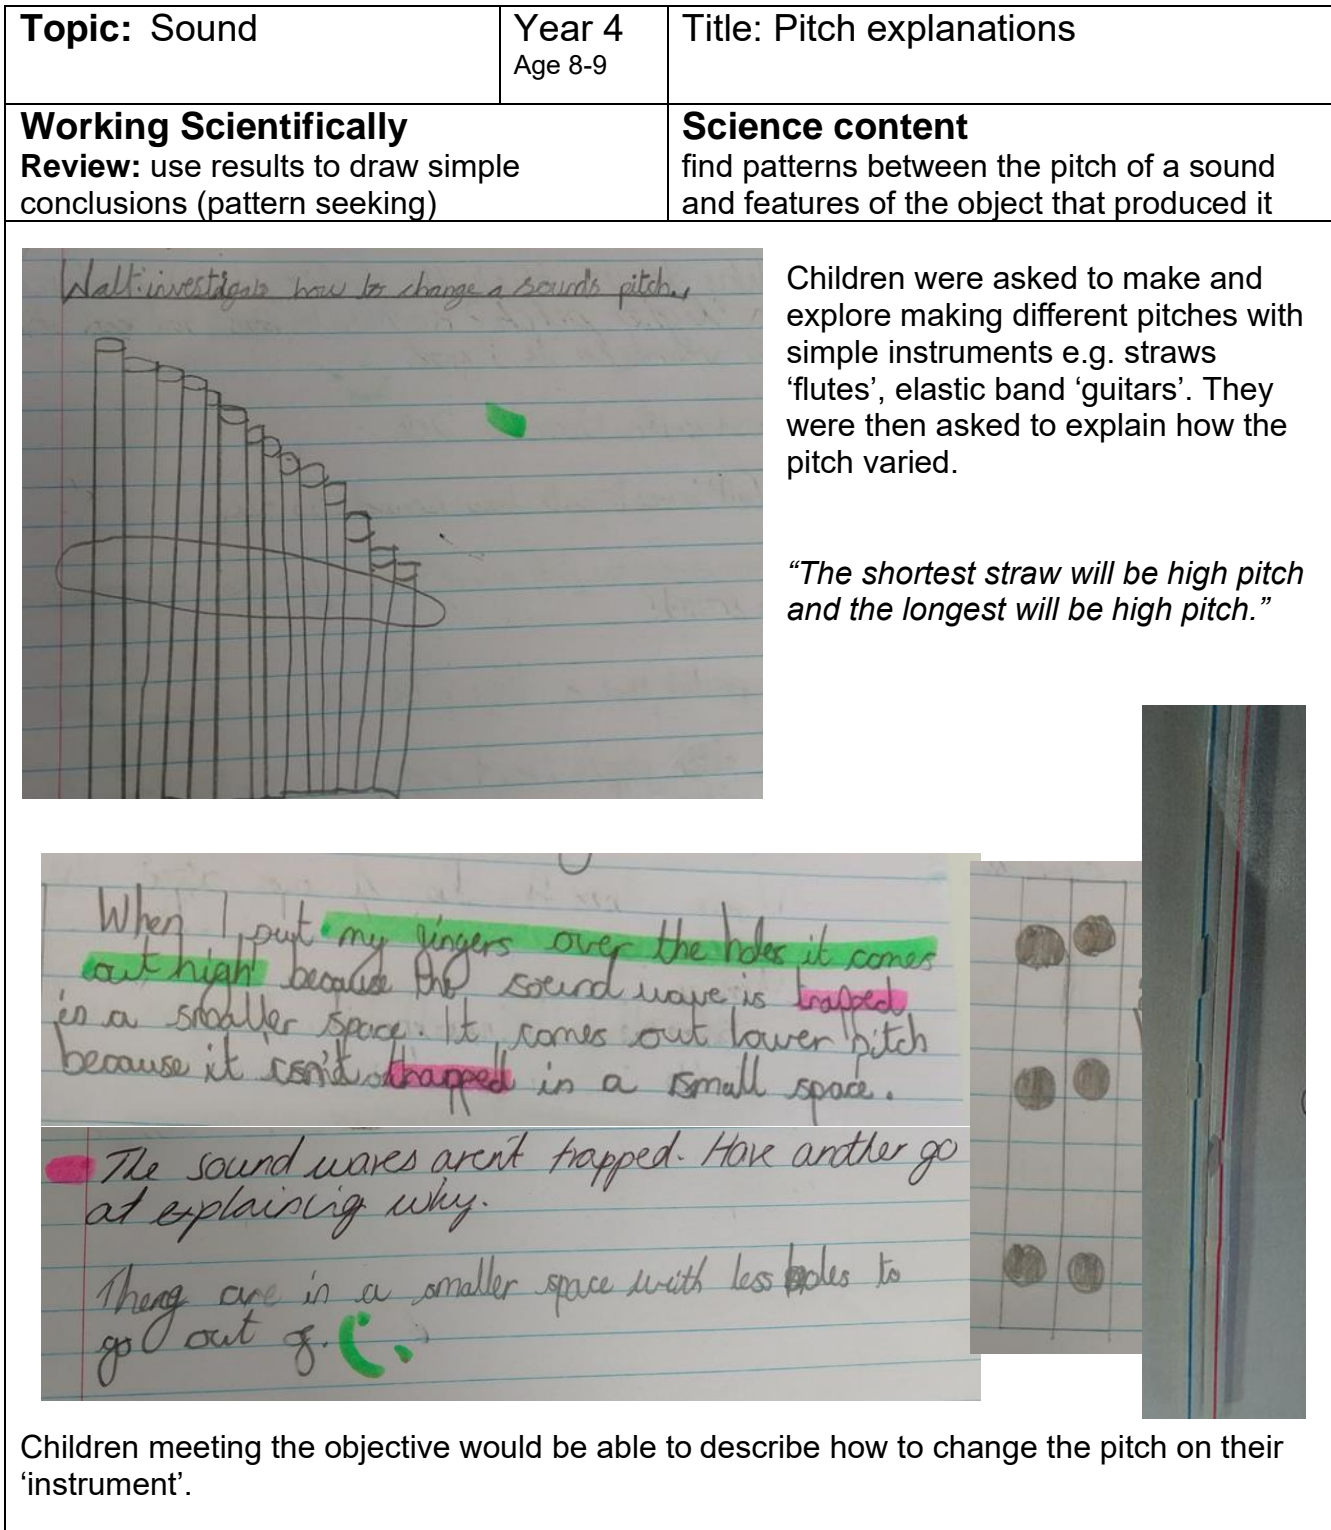 Topic: Sound
Year 4
Age 8-9
Title: Pitch explanations
Working Scientifically
Review: use results to draw simple
conclusions (pattern seeking)
Science content
find patterns between the pitch of a sound
and features of the object that produced it
Walt: investigate how to change a sound's pitch.
Children were asked to make and
explore making different pitches with
simple instruments e.g. straws
‘flutes’, elastic band ‘guitars’. They
were then asked to explain how the
pitch varied.
“The shortest straw will be high pitch
and the longest will be high pitch.”
When I put my fingers over the holes it comes
out high because the sound wave is trapped
in a smaller space. It comes out lower pitch
because it isn't trapped in a small space.
The sound waves aren't trapped. Have another go
at explaining why.
are in a smaller space with less holes to
go out of.
Children meeting the objective would be able to describe how to change the pitch on their
‘instrument’.